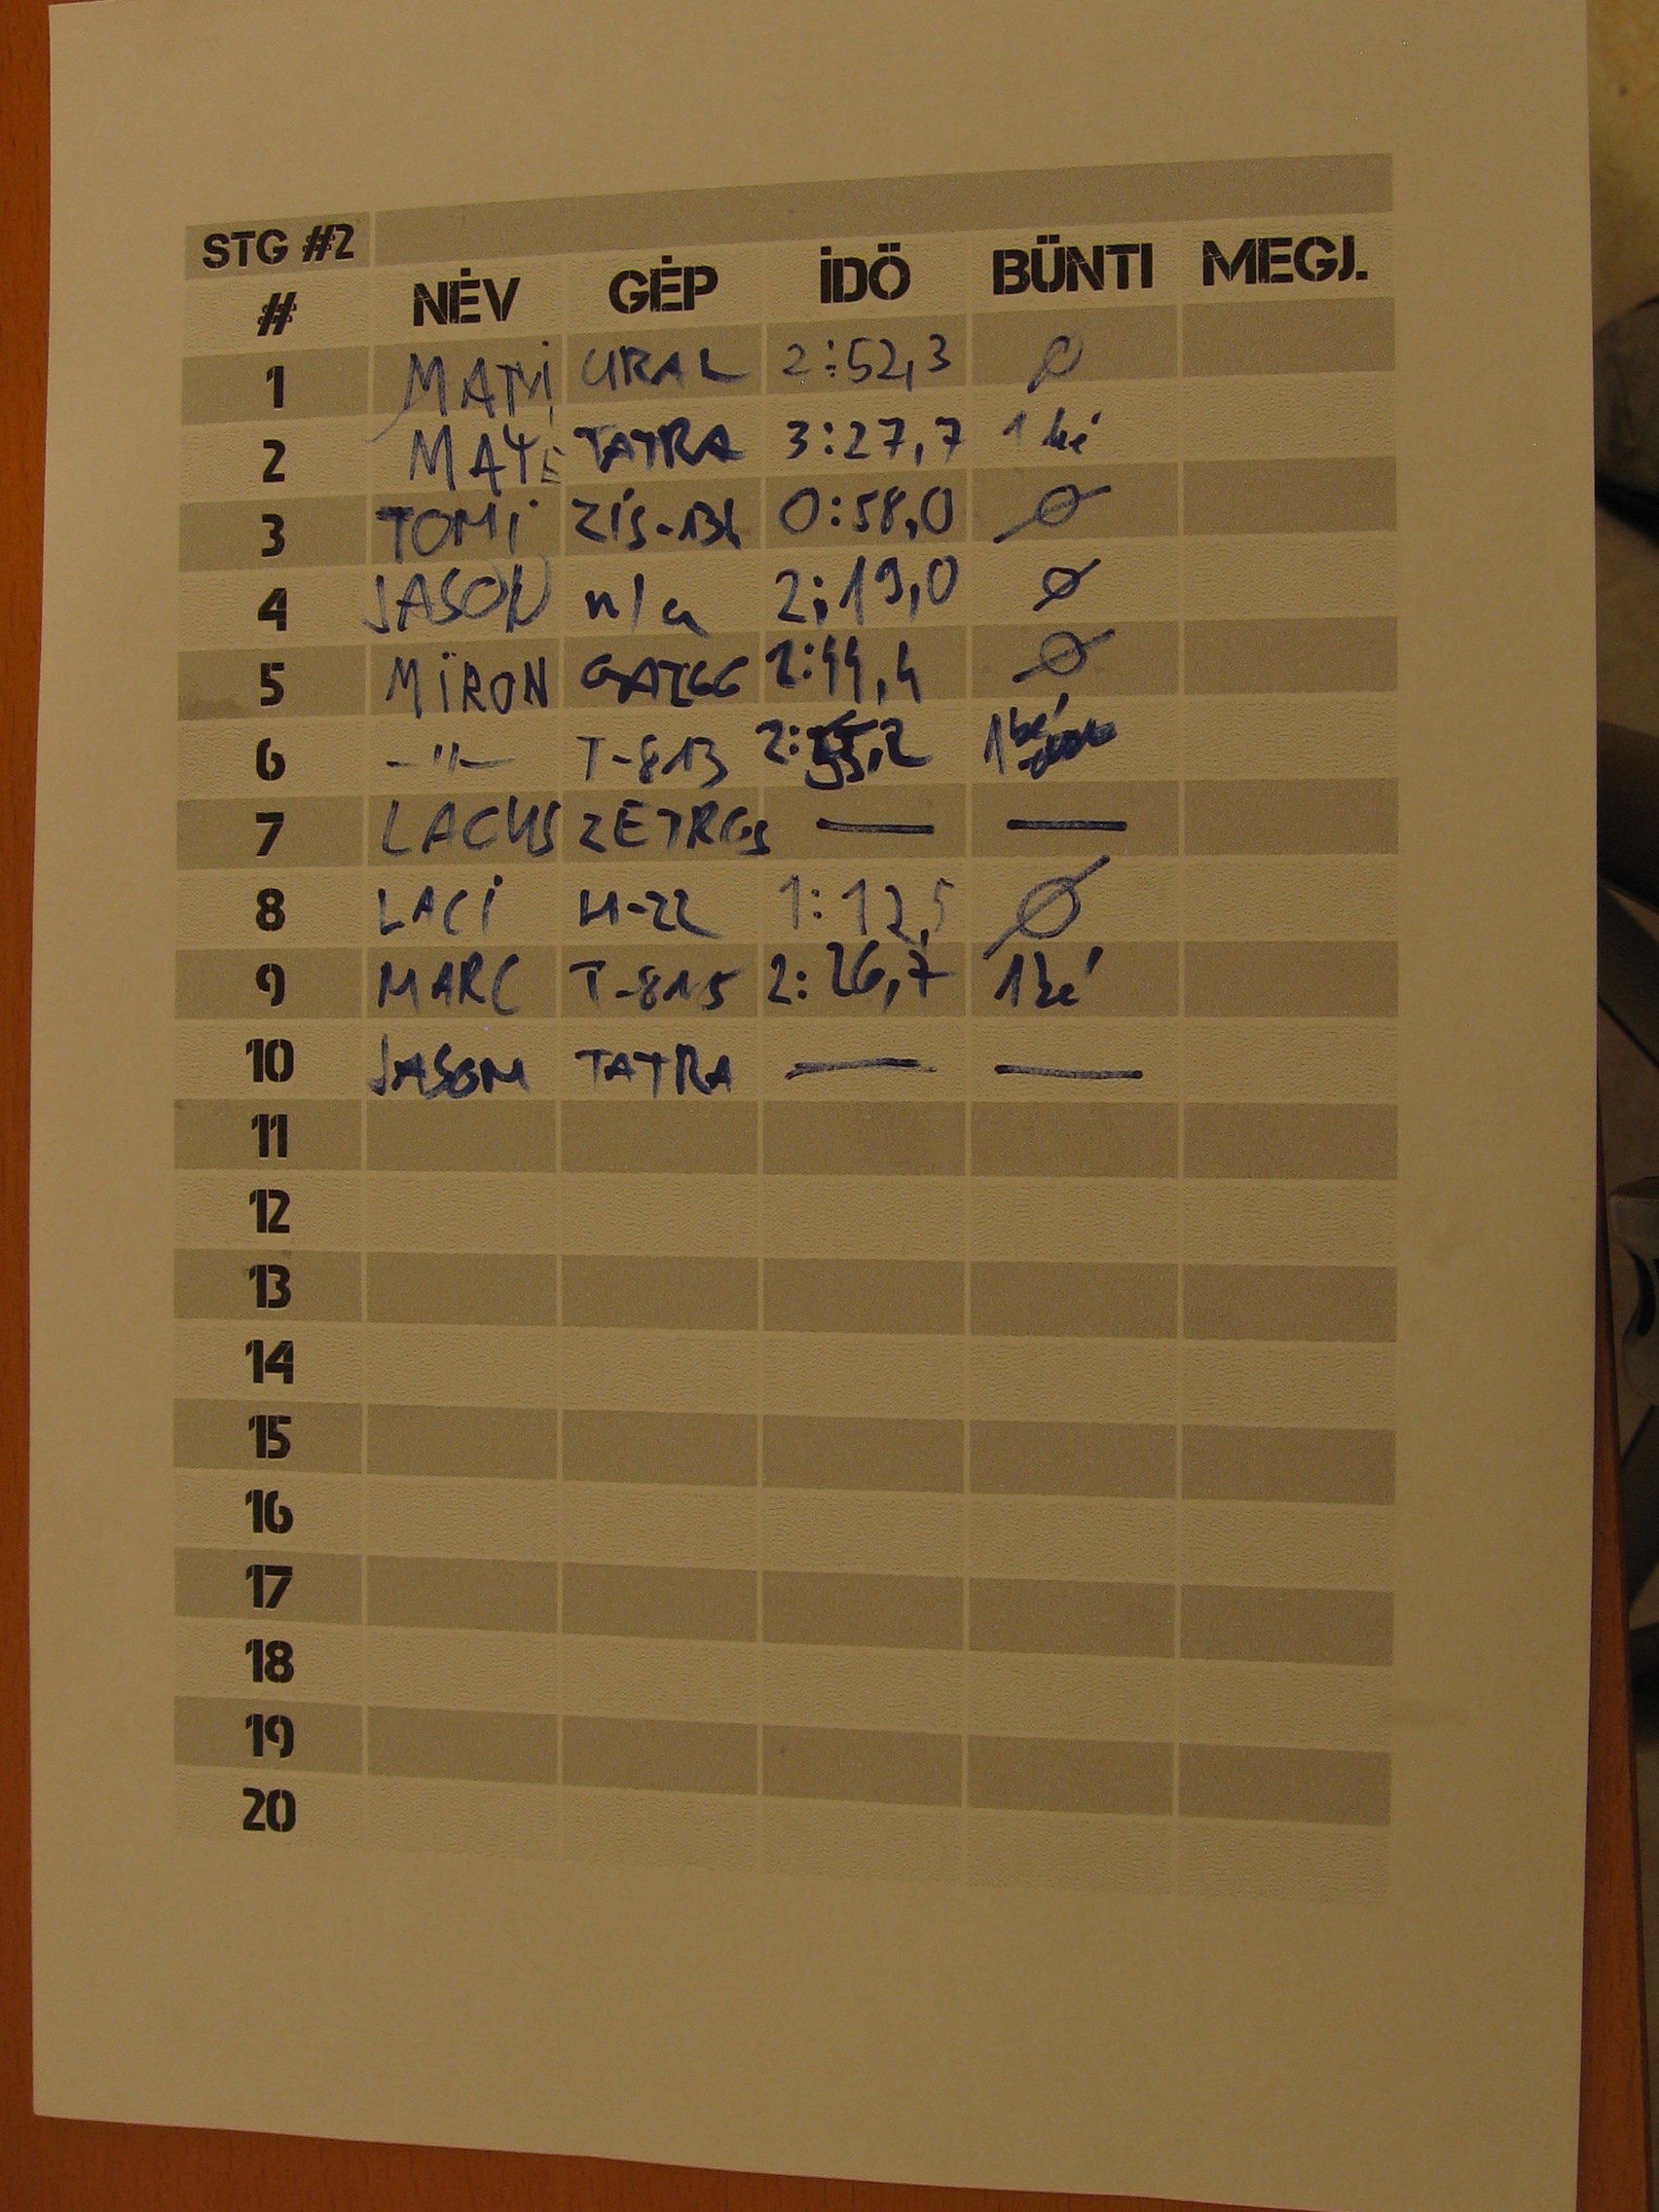 STG #2
# NÉV GÉP İDÖ BÜNTI MEGJ.
1 MATYI URAL 2:52,3 Ø
2 MATE TATRA 3:27,7 1 bé
3 TOMi ZiS-131 0:58,0 Ø
4 JASON n/a 2:19,0 Ø
5 MiRON GAZ66 2:44,4 Ø
6 -"- T-813 2:55,2 1 bé
7 LACUS ZETROS — —
8 LACi 1:12,5 Ø
9 MARC T-815 2:26,7 1 bé
10 JASON TATRA — —
11
12
13
14
15
16
17
18
19
20